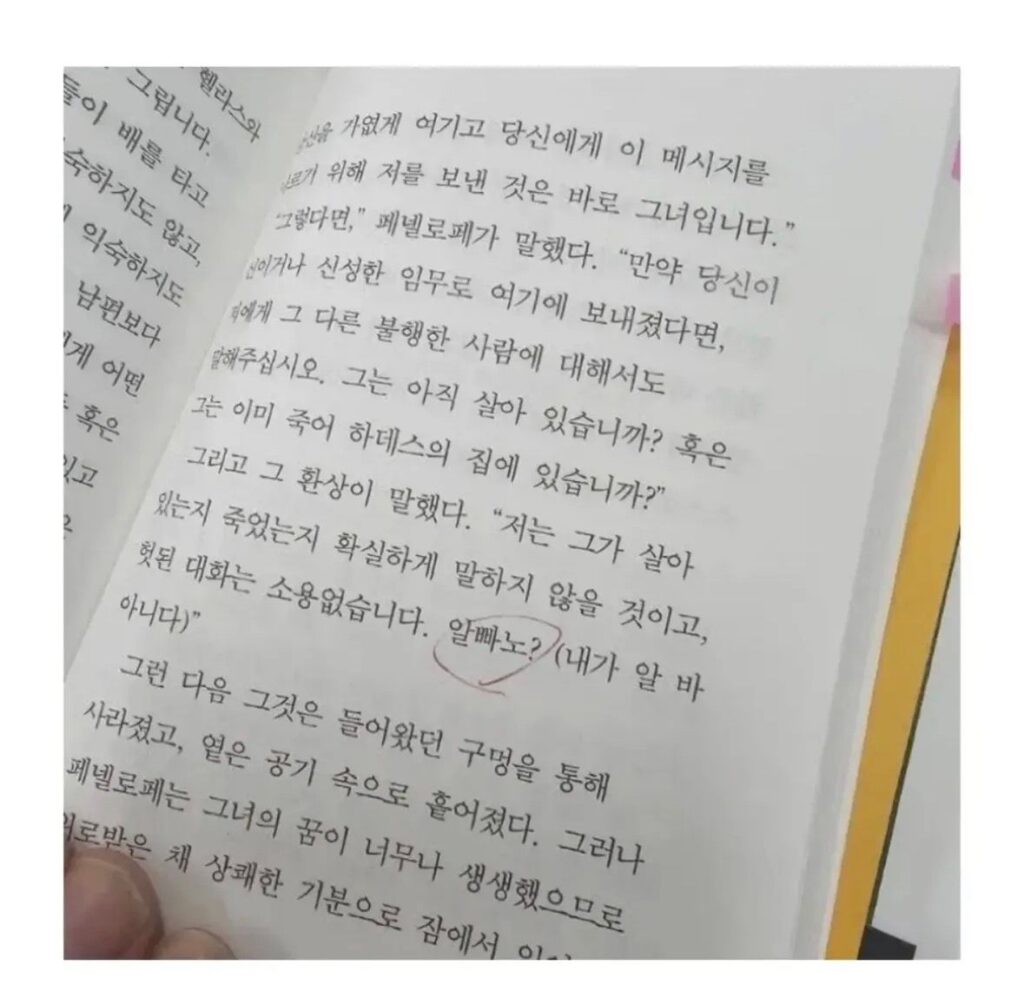 헬라스와
그립니다.
들이 배를 타고
숙하지도 않고,
익숙하지도
남편보다
에게 어떤
혹은
있고
가엾게 여기고 당신에게 이 메시지를
위해 저를 보낸 것은 바로 그녀입니다.”
“그렇다면,” 페넬로페가 말했다. “만약 당신이
신이거나 신성한 임무로 여기에 보내졌다면,
저에게 그 다른 불행한 사람에 대해서도
말해주십시오. 그는 아직 살아 있습니까? 혹은
그는 이미 죽어 하데스의 집에 있습니까?”
그리고 그 환상이 말했다. “저는 그가 살아
있는지 죽었는지 확실하게 말하지 않을 것이고,
헛된 대화는 소용없습니다. 알빠노? (내가 알 바
아니다)”
그런 다음 그것은 들어왔던 구멍을 통해
사라졌고, 옅은 공기 속으로 흩어졌다. 그러나
페넬로페는 그녀의 꿈이 너무나 생생했으므로
위로받은 채 상쾌한 기분으로 잠에서